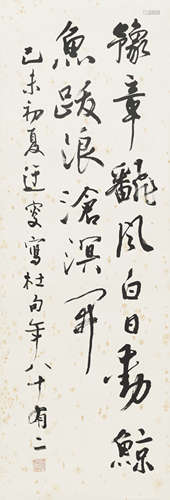 豫章翻风白日动鲸
鱼跋浪沧溟开
己未初夏迂叟写杜句年八十有二